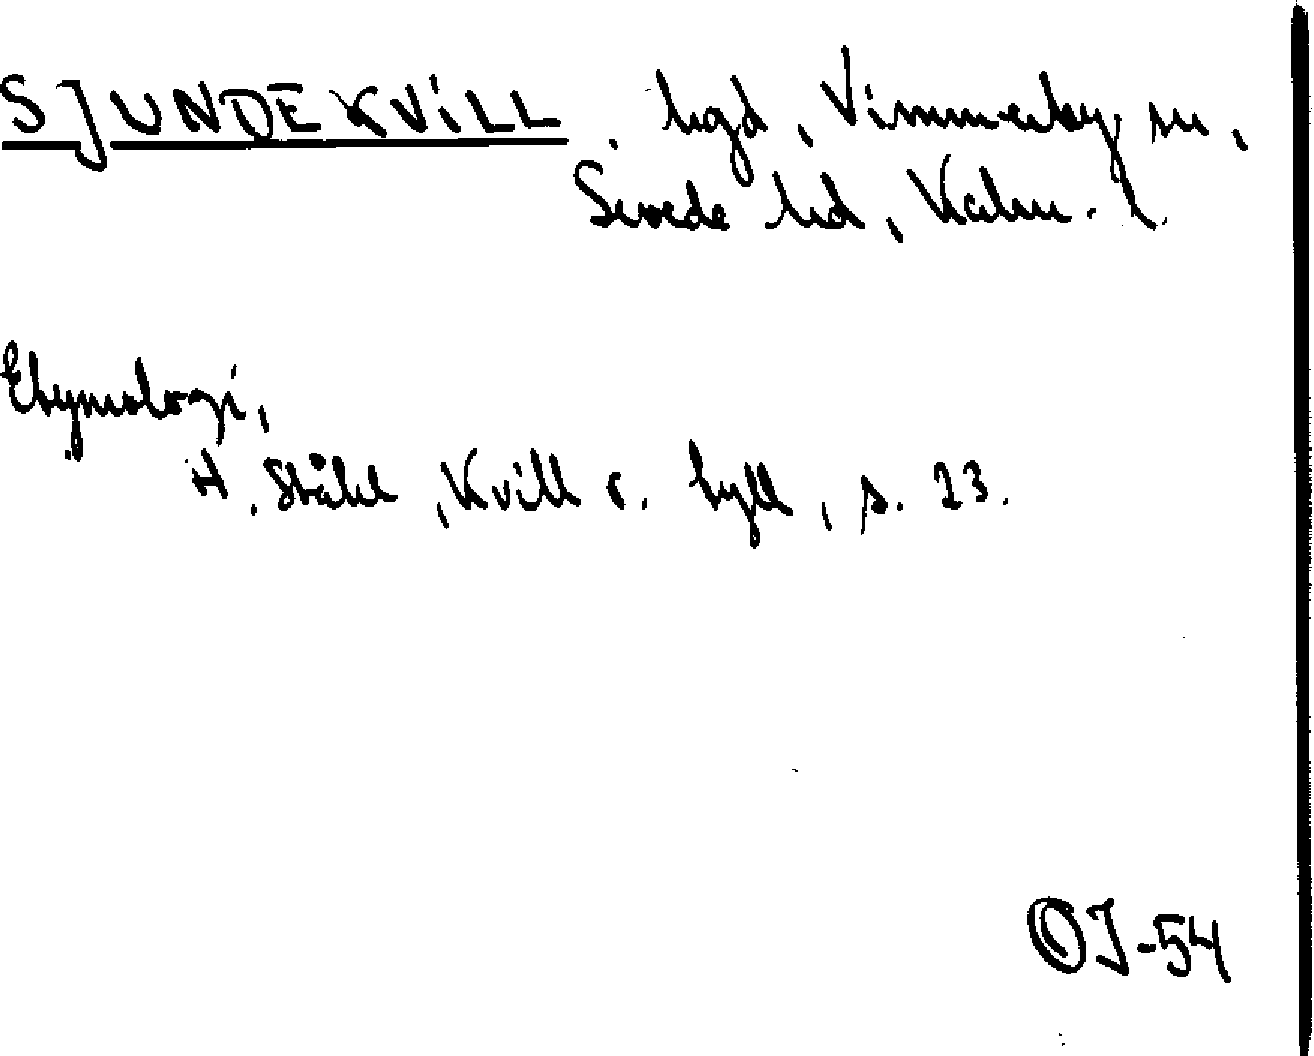 SJUNDEKVILL, hgd, Vimmerby sn,
Sevede hd, Kalm. l.
Etymologi,
H. Ståhl, Kvill o. tyll, s. 23.
OJ-54